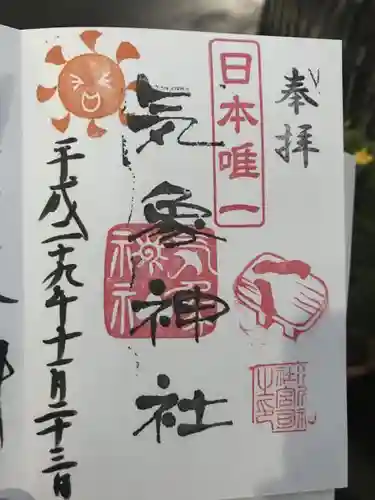 奉拝
日本唯一
気象神社
平成二十九年十一月二十三日